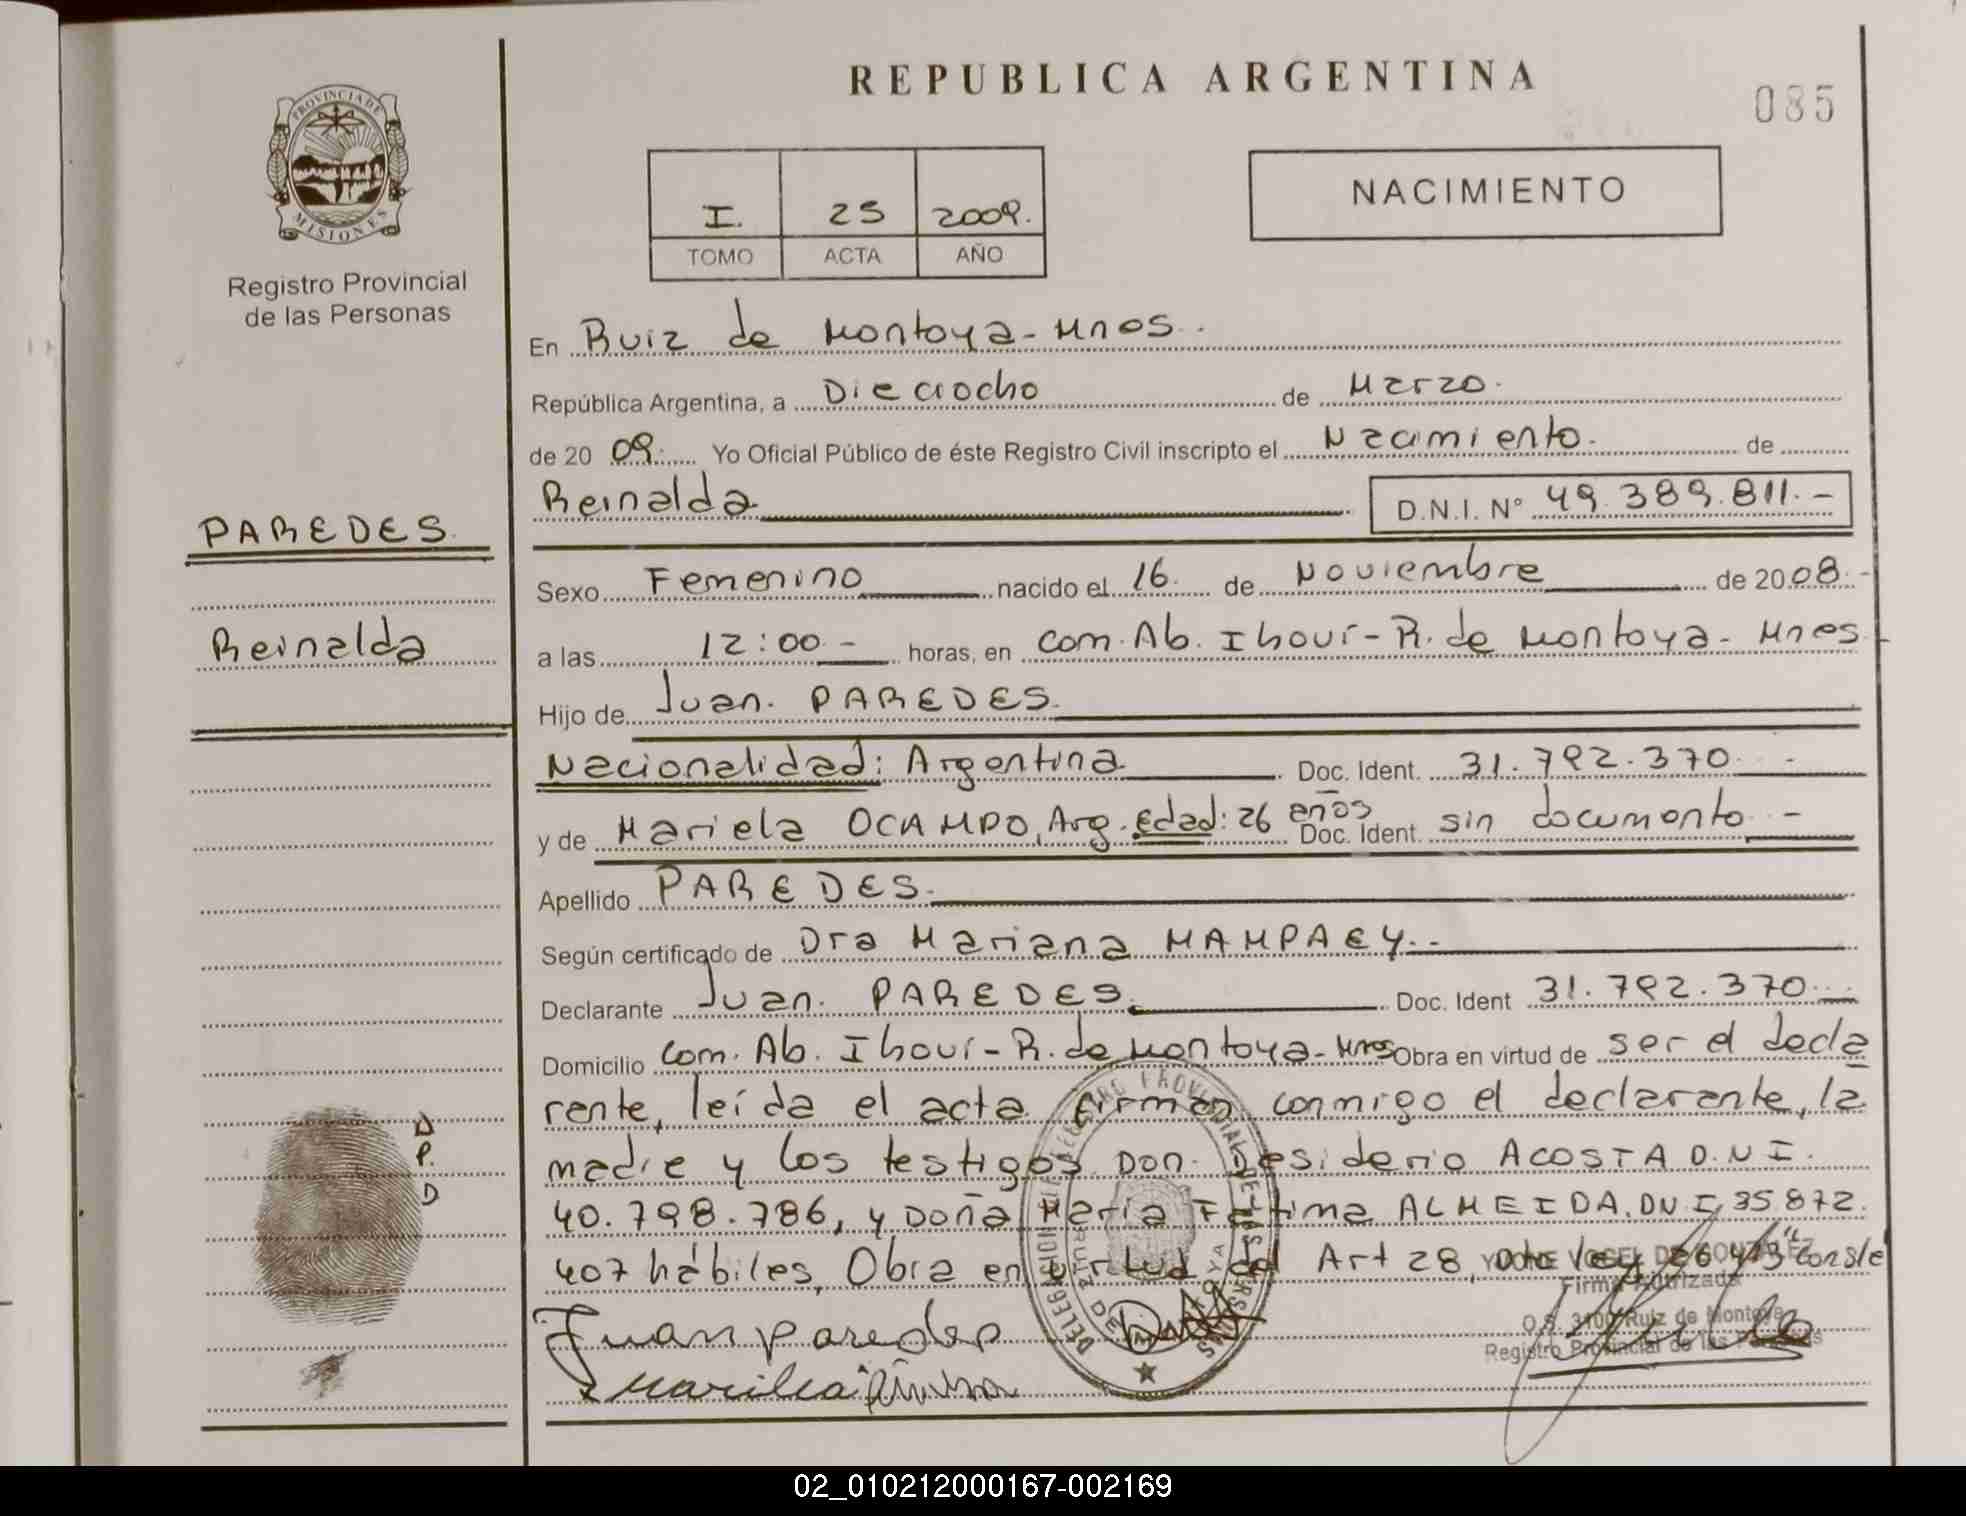 REPUBLICA ARGENTINA
085
PROVINCIA DE
MISIONES
Registro Provincial
de las Personas
I. 25 2009.
TOMO ACTA AÑO
NACIMIENTO
En Ruiz de Montoya - Mnes.
República Argentina, a Dieciocho de Marzo.
de 20 09. Yo Oficial Público de éste Registro Civil inscripto el Nacimiento. de
Reinalda D.N.I. N° 49.389.811.-
PAREDES.
Reinalda
Sexo Femenino nacido el 16. de Noviembre de 20 08.-
a las 12:00.- horas, en com. Ab. Ihovi - R. de Montoya - Mnes.
Hijo de Juan. PAREDES.
Nacionalidad: Argentina Doc. Ident. 31.792.370. -
y de Mariela OCAMPO, Arg. Edad: 26 años Doc. Ident. sin documento. -
Apellido PAREDES.
Según certificado de Dra Mariana MAMPAEY. -
Declarante Juan. PAREDES. Doc. Ident 31.792.370.
Domicilio Com. Ab. Ihovi - R. de Montoya - Mnes Obra en virtud de ser el decla
rante, leída el acta firman conmigo el declarante, la
madre y los testigos Don. Desiderio ACOSTA D.N.I.
40.798.786, y Doña María Fatima ALMEIDA. DNI, 35.872.
407 hábiles, Obra en virtud del Art 28, Conste
D
P.
D
Juan Paredes
Firma Autorizada
O.S. 3100 Ruiz de Montoya
Registro Provincial de las Personas
02_010212000167-002169